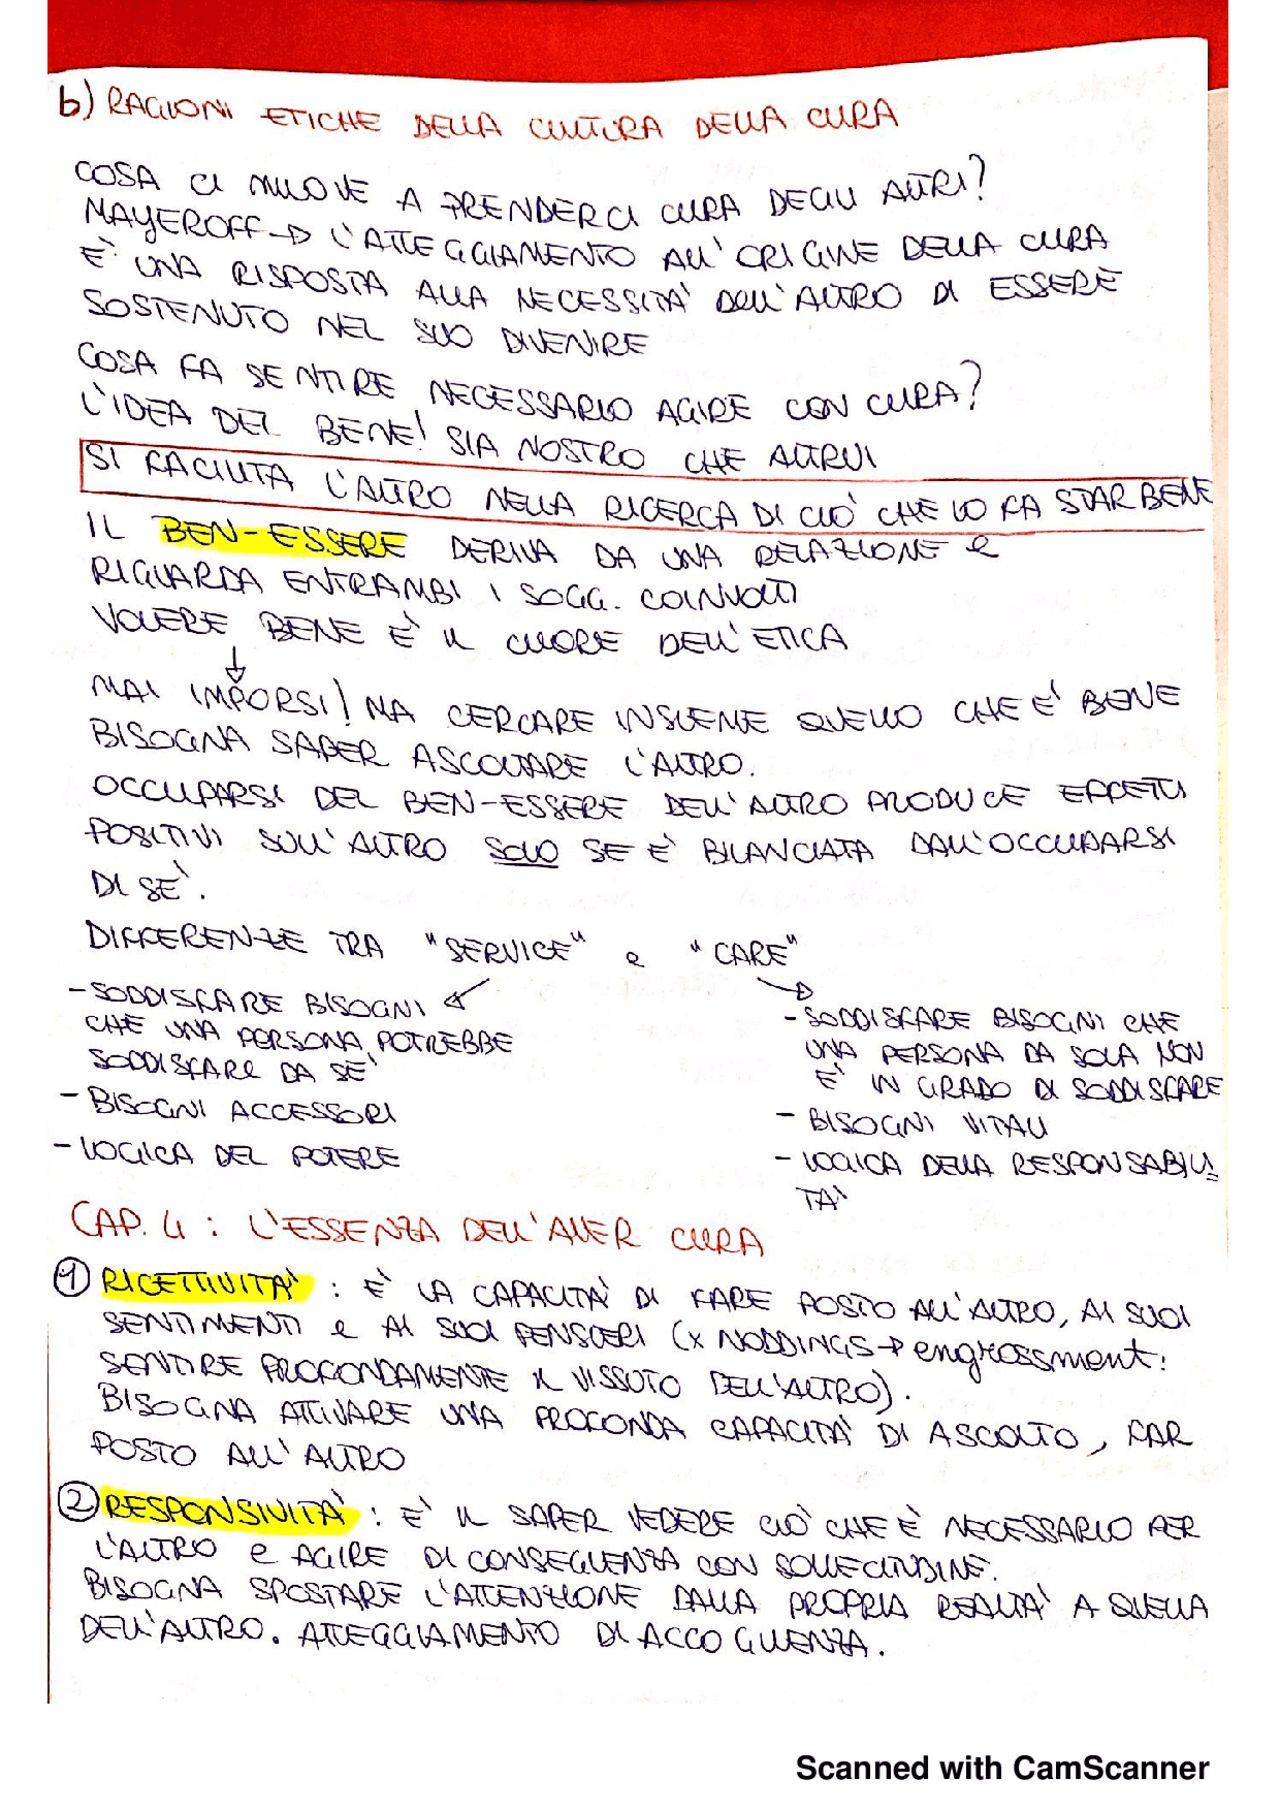 b) RAGIONI ETICHE DELLA CULTURA DELLA CURA
COSA CI MUOVE A PRENDERCI CURA DEGLI ALTRI?
MAYEROFF → L'ATTEGGIAMENTO ALL'ORIGINE DELLA CURA
È UNA RISPOSTA ALLA NECESSITÀ DELL'ALTRO DI ESSERE
SOSTENUTO NEL SUO DIVENIRE
COSA FA SENTIRE NECESSARIO AGIRE CON CURA?
L'IDEA DEL BENE! SIA NOSTRO CHE ALTRUI
SI FACILITA L'ALTRO NELLA RICERCA DI CIÒ CHE LO FA STAR BENE
IL BEN-ESSERE DERIVA DA UNA RELAZIONE e
RIGUARDA ENTRAMBI I SOGG. COINVOLTI
VOLERE BENE È IL CUORE DELL'ETICA
↓
MAI IMPORSI! MA CERCARE INSIEME QUELLO CHE È BENE
BISOGNA SAPER ASCOLTARE L'ALTRO.
OCCUPARSI DEL BEN-ESSERE DELL'ALTRO PRODUCE EFFETTI
POSITIVI SULL'ALTRO SOLO SE È BILANCIATA DALL'OCCUPARSI
DI SÈ.
DIFFERENZE TRA "SERVICE" e "CARE"
- SODDISFARE BISOGNI
CHE UNA PERSONA POTREBBE
SODDISFARE DA SÈ
- BISOGNI ACCESSORI
- LOGICA DEL POTERE
- SODDISFARE BISOGNI CHE
UNA PERSONA DA SOLA NON
È IN GRADO DI SODDISFARE
- BISOGNI VITALI
- LOGICA DELLA RESPONSABILI=
TÀ
CAP. 4 : L'ESSENZA DELL'AVER CURA
① RICETTIVITÀ : È LA CAPACITÀ DI FARE POSTO ALL'ALTRO, AI SUOI
SENTIMENTI e AI SUOI PENSIERI (x NODDINGS → engrossment:
SENTIRE PROFONDAMENTE IL VISSUTO DELL'ALTRO).
BISOGNA ATTIVARE UNA PROFONDA CAPACITÀ DI ASCOLTO, FAR
POSTO ALL'ALTRO
② RESPONSIVITÀ : È IL SAPER VEDERE CIÒ CHE È NECESSARIO PER
L'ALTRO e AGIRE DI CONSEGUENZA CON SOLLECITUDINE.
BISOGNA SPOSTARE L'ATTENZIONE DALLA PROPRIA REALTÀ A QUELLA
DELL'ALTRO. ATTEGGIAMENTO DI ACCOGLIENZA.
Scanned with CamScanner